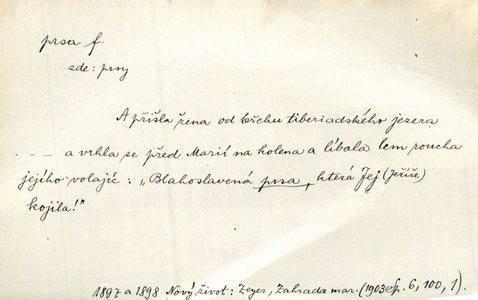 prsa f.
zde: prsy
A přišla žena od břehu tiberiadského jezera
--- a vrhla se před Marií na kolena a líbala lem roucha
jejího volajíc: „Blahoslavená prsa, která Jej (Ježíše)
kojila!"
1897 a 1898 Nový život: Zeyer, Zahrada mar. (1903 Sp. 6, 100, 1).